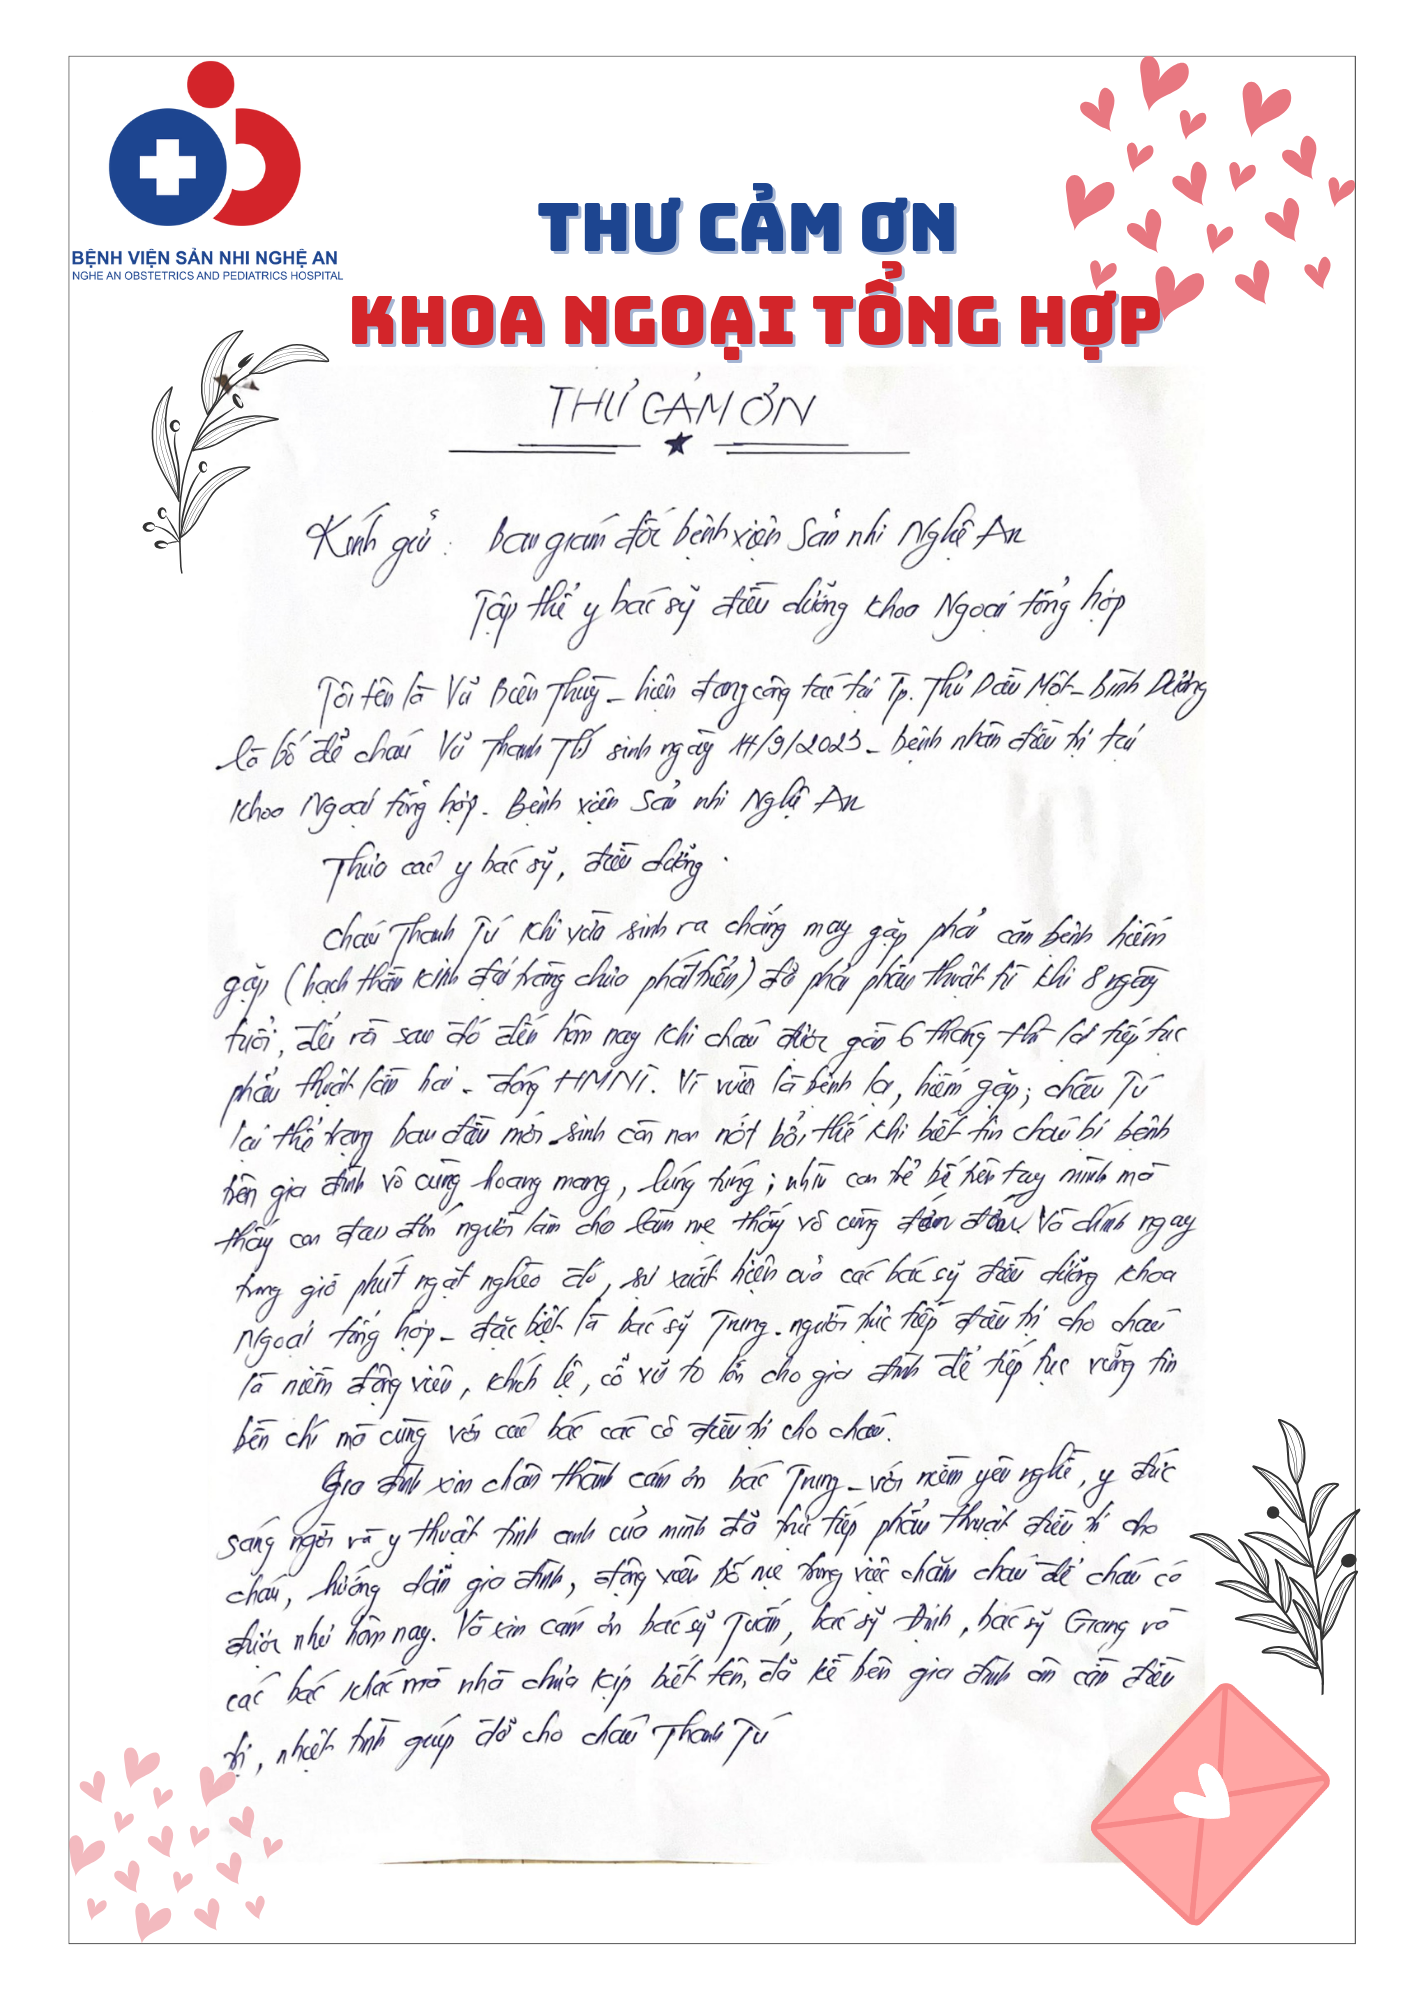 BỆNH VIỆN SẢN NHI NGHỆ AN
NGHE AN OBSTETRICS AND PEDIATRICS HOSPITAL
THƯ CẢM ƠN
KHOA NGOẠI TỔNG HỢP
THƯ CẢM ƠN
Kính gửi: Ban giám đốc bệnh viện Sản nhi Nghệ An
Tập thể y bác sỹ điều dưỡng khoa Ngoại tổng hợp
Tôi tên là Vũ Biên Thuỳ - hiện đang công tác tại Tp. Thủ Dầu Một - Bình Dương
là bố đẻ cháu Vũ Thanh Tú sinh ngày 14/9/2023 - bệnh nhân điều trị tại
khoa Ngoại tổng hợp - Bệnh viện Sản nhi Nghệ An
Thưa các y bác sỹ, điều dưỡng.
Cháu Thanh Tú khi vừa sinh ra chẳng may gặp phải căn bệnh hiếm
gặp (hạch thần kinh đại tràng chưa phát triển) đã phải phẫu thuật từ khi 8 ngày
tuổi, rồi sau đó đến hôm nay khi cháu được gần 6 tháng thì lại tiếp tục
phẫu thuật lần hai - đóng HMNT. Vì vừa là bệnh lạ, hiếm gặp; cháu Tú
lại thể trạng ban đầu mới sinh còn non nớt bởi thế khi biết tin cháu bị bệnh
trên gia đình vô cùng hoang mang, lúng túng; nhìn con trẻ bế trên tay mình mà
thấy con đau đớn người làm cha làm mẹ thấy vô cùng đau đớn. Và chính ngay
trong giờ phút ngặt nghèo đó, sự xuất hiện của các bác sỹ điều dưỡng khoa
Ngoại tổng hợp - đặc biệt là bác sỹ Trung - người trực tiếp điều trị cho cháu
là niềm động viên, khích lệ, cổ vũ to lớn cho gia đình để tiếp tục vững tin
bền chí mà cùng với các bác các cô điều trị cho cháu.
Gia đình xin chân thành cám ơn bác Trung - với niềm yêu nghề, y đức
sáng ngời và y thuật tinh anh của mình đã trực tiếp phẫu thuật điều trị cho
cháu, hướng dẫn gia đình, động viên bố mẹ trong việc chăm cháu để cháu có
được như hôm nay. Và xin cám ơn bác sỹ Tuấn, bác sỹ Định, bác sỹ Giang và
các bác khác mà nhà chưa kịp biết tên, đã kề bên gia đình ân cần điều
trị, nhiệt tình giúp đỡ cho cháu Thanh Tú